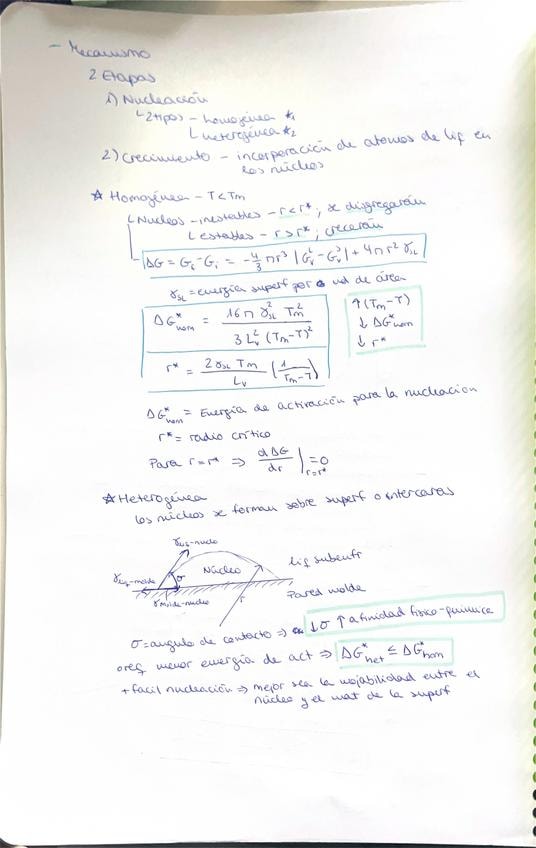 - Mecanismo
2 Etapas
1) Nucleación
↳ 2 tipos - homogénea *1
↳ heterogénea *2
2) Crecimiento - incorporación de atomos de liq en
los núcleos
☆ Homogénea - T < Tm
↳ Nucleos - inestables - r < r*, se disgregarán
↳ estables - r > r*, crecerán
ΔG = - 4/3 π r³ | | + 4 π r² γSL
γSL = energía superf por ud de área
ΔG*hom = 16 π γ³SL T²m / 3 L²v (Tm - T)²
↑ (Tm - T)
↓ ΔG*hom
↓ r*
r* = 2 γSL Tm / Lv (1 / Tm - T)
ΔG*hom = Energía de activación para la nucleacion
r* = radio crítico
Para r = r* ⇒ dΔG / dr | r=r* = 0
☆ Heterogénea
los núcleos se forman sobre superf o intercaras
γliq-nucleo
Núcleo
liq subenfr
γliq-molde
σ
r
Pared molde
γmolde-nucleo
σ = angulo de contacto ⇒ ↓σ ↑ afinidad físico-química
menor energía de act ⇒ ΔG*het ≤ ΔG*hom
+ facil nucleación ⇒ mejor sea la mojabilidad entre el
núcleo y el mat de la superf